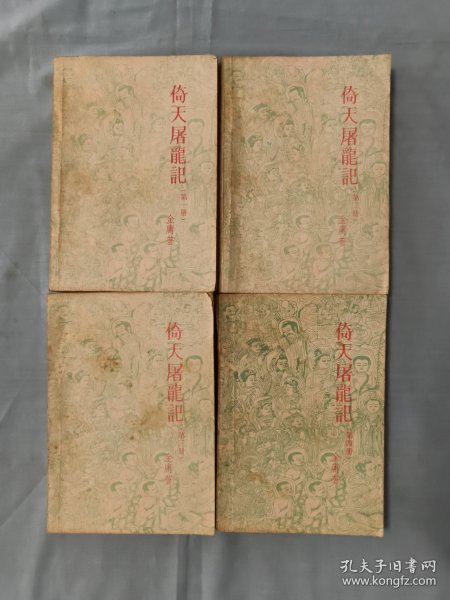 倚天屠龍記
（第一冊）
金庸著
倚天屠龍記
金庸著
倚天屠龍記
金庸著
倚天屠龍記
第四冊
金庸著
孔夫子旧书网
www.kongfz.com